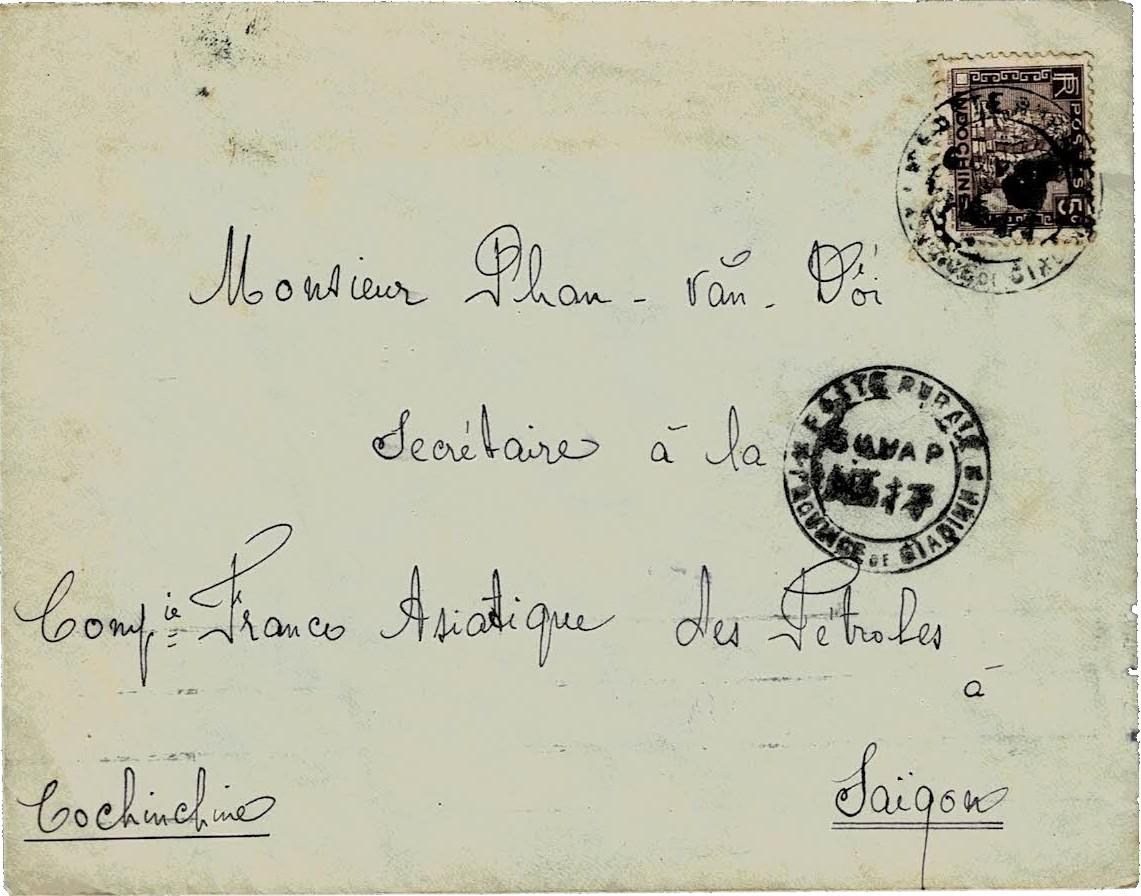 RF POSTES 5c
INDOCHINE
Monsieur Phan - văn - Đới
Secrétaire à la
POSTE RURALE
GOVAP
PROVINCE DE GIADINH
Compie Franco Asiatique des Pétroles
à
Cochinchine Saïgon